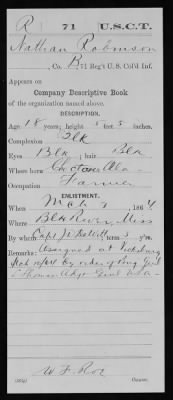 R 71 U.S.C.T.
Nathan Robinson
, Co. B, 71 Reg't U. S. Col'd Inf.
Appears on
Company Descriptive Book
of the organization named above.
DESCRIPTION.
Age 18 years; height 5 feet 5 inches.
Complexion Blk
Eyes Blk ; hair Blk
Where born Choctaw Ala
Occupation Farmer
ENLISTMENT.
When Mch , 1864
Where Blk River, Miss
By whom Capt ; term 3 y'rs.
Remarks: Assigned at Vicksburg
by order of Brig Genl
L Thomas Adjt Genl U S A
Copyist.